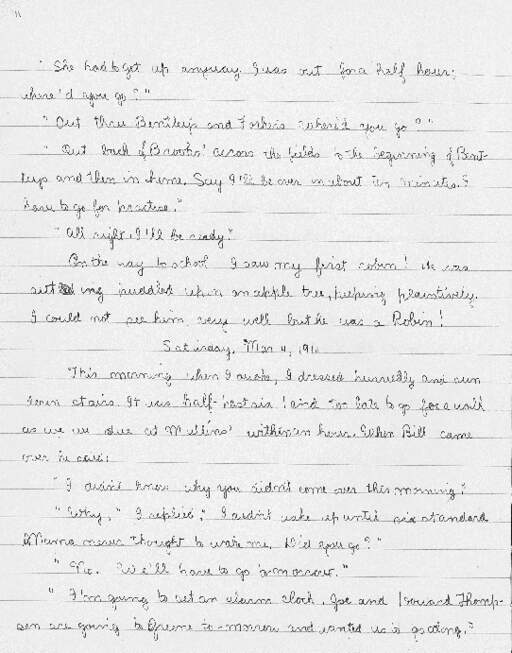 11
"She had to get up anyway. I was out for a half hour;
where'd you go?"
"Out thru Bentleys and Fosters. Where'd you go?"
"Out back of Brooks' across the fields to the beginning of Bent-
leys and then in home. Say I'll be over in about ten minutes. I
have to go for practice."
"All right, I'll be ready."
On the way to school I saw my first robin! He was
sitting huddled up in an apple tree, peeping plaintively.
I could not see him very well but he was a Robin!
Saturday, Mar 4, 191
This morning when I awoke, I dressed hurriedly and run
down stairs. It was half-past six! and too late to go for a walk
as we are due at Mullins' within an hour. When Bill came
over he said:
"I didn't know why you didn't come over this morning."
"Why," I replied, "I didn't wake up until six standard
Mama never thought to wake me. Did you go?"
"No. We'll have to go tomorrow."
"I'm going to set an alarm clock. Joe and Howard Thomp-
son are going to Greene to-morrow and wanted us to go along."